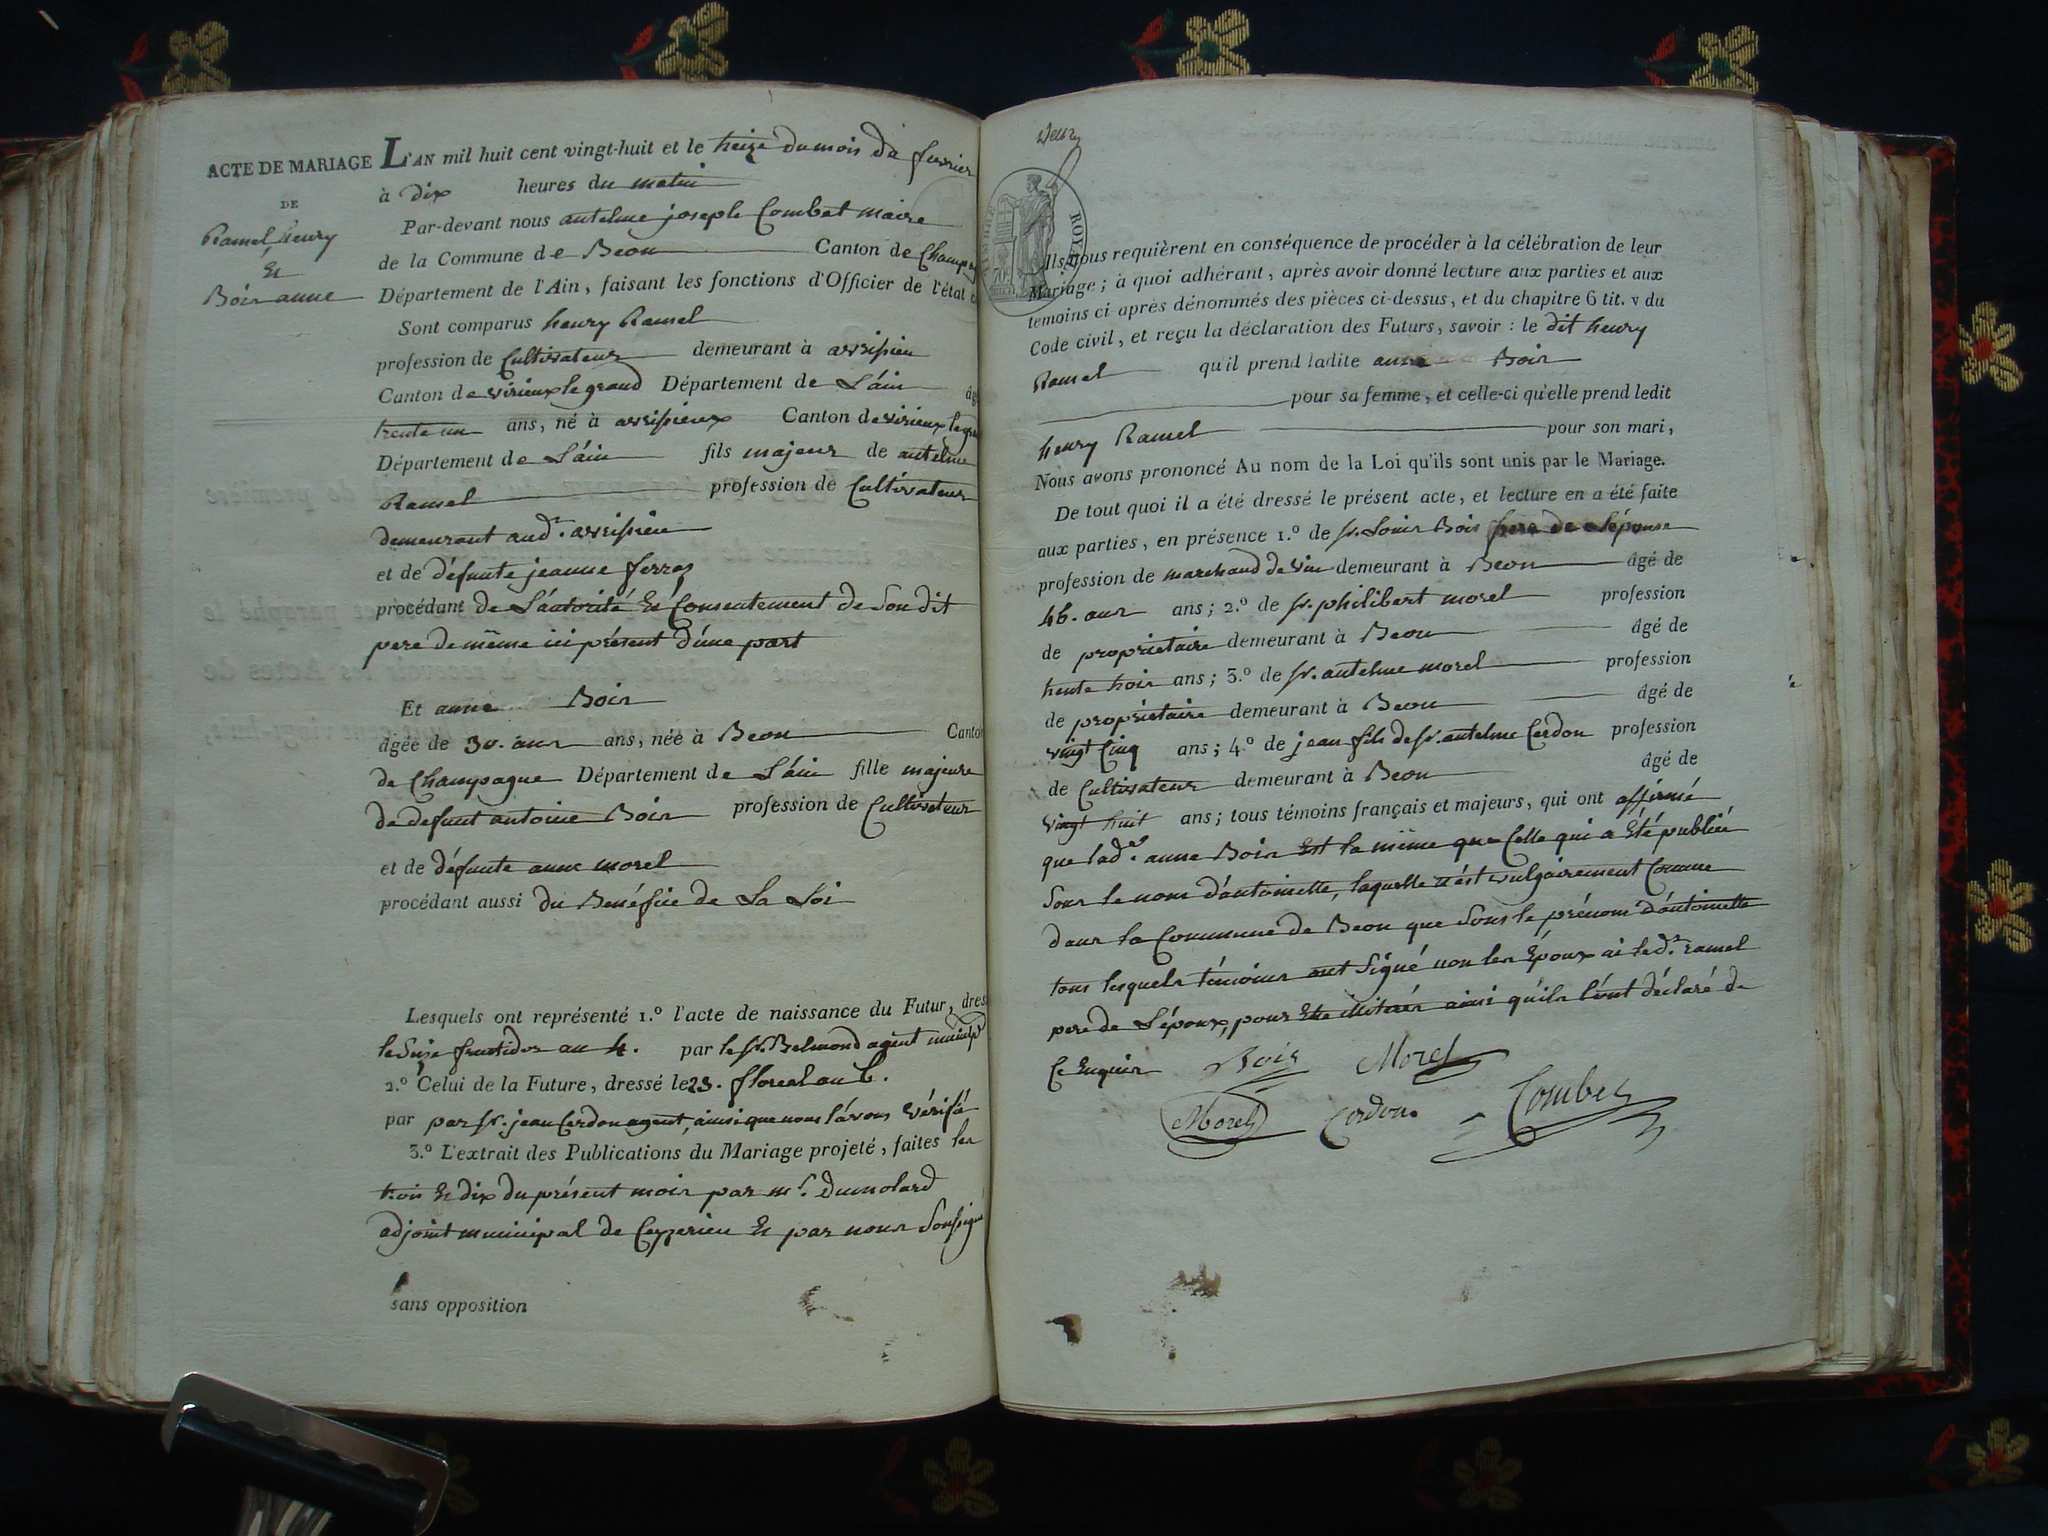 ACTE DE MARIAGE
DE
Ramel, henry
Et
Bois anne
L'AN mil huit cent vingt-huit et le treize du mois de fevrier
à Dix heures du matin
Par-devant nous antelme joseph Combet maire
de la Commune de Beon Canton de Champagne
Département de l'Ain, faisant les fonctions d'Officier de l'état
Sont comparus henry Ramel
profession de Cultivateur demeurant à arvissieu
Canton de virieux le grand Département de L'ain âgé
trente un ans, né à arvissieux Canton de virieux le grand
Département de L'ain fils majeur de antelme
Ramel profession de Cultivateur
demeurant aud.t arvissieu
et de défunte jeanne ferroz
procédant de L'autorité Et Consentement de Son dit
pere de même ici présent d'une part
Et anne Bois
âgée de 30. ans ans, née à Beon Canton
de Champagne Département de L'ain fille majeure
de defunt antoine Bois profession de Cultivateur
et de défunte anne morel
procédant aussi du Bénéfice de La Loi
Lesquels ont représenté 1.º l'acte de naissance du Futur, dressé
le Seize fructidor an 4. par le Sr. Belmond agent municipal
2.º Celui de la Future, dressé le 23. floreal an 6.
par par Sr. jean Cerdon agent, ainsi que nous l'avons Vérifié
3.º L'extrait des Publications du Mariage projeté, faites les
trois Et dix du présent mois par mr. Dumolard
adjoint municipal de Ceyzerieu Et par nous Soussigné
sans opposition
ROYAL
Ils nous requièrent en conséquence de procéder à la célébration de leur
Mariage; à quoi adhérant, après avoir donné lecture aux parties et aux
temoins ci après dénommés des pièces ci-dessus, et du chapitre 6 tit. v du
Code civil, et reçu la déclaration des Futurs, savoir : le dit henry
Ramel qu'il prend ladite anne Bois
pour sa femme, et celle-ci qu'elle prend ledit
henry Ramel pour son mari,
Nous avons prononcé Au nom de la Loi qu'ils sont unis par le Mariage.
De tout quoi il a été dressé le présent acte, et lecture en a été faite
aux parties, en présence 1.º de Sr. Louis Bois frere de L'épouse
profession de marchand de vin demeurant à Beon âgé de
46. ans ans; 2.º de Sr. philibert morel profession
de propriétaire demeurant à Beon âgé de
trente trois ans; 3.º de Sr. antelme morel profession
de propriétaire demeurant à Beon âgé de
vingt Cinq ans; 4.º de jean fils de Sr. antelme Cerdon profession
de Cultivateur demeurant à Beon âgé de
vingt huit ans; tous témoins français et majeurs, qui ont affirmé
que lad.e anne Bois Est la même que Celle qui a Eté publiée
Sous le nom d'antoinette, laquelle n'est vulgairement Connue
dans la Commune de Beon que Sous le prénom d'antoinette
tous lesquels témoins ont Signé non les Epoux ni led.t ramel
pere de L'époux, pour Etre illiterés ainsi qu'ils l'ont déclaré de
Ce Enquis Bois Morel
Morel Cerdon Combet